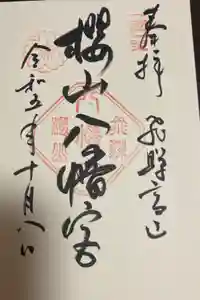 奉拝 飛騨高山
櫻山八幡宮
令和五年十月八日